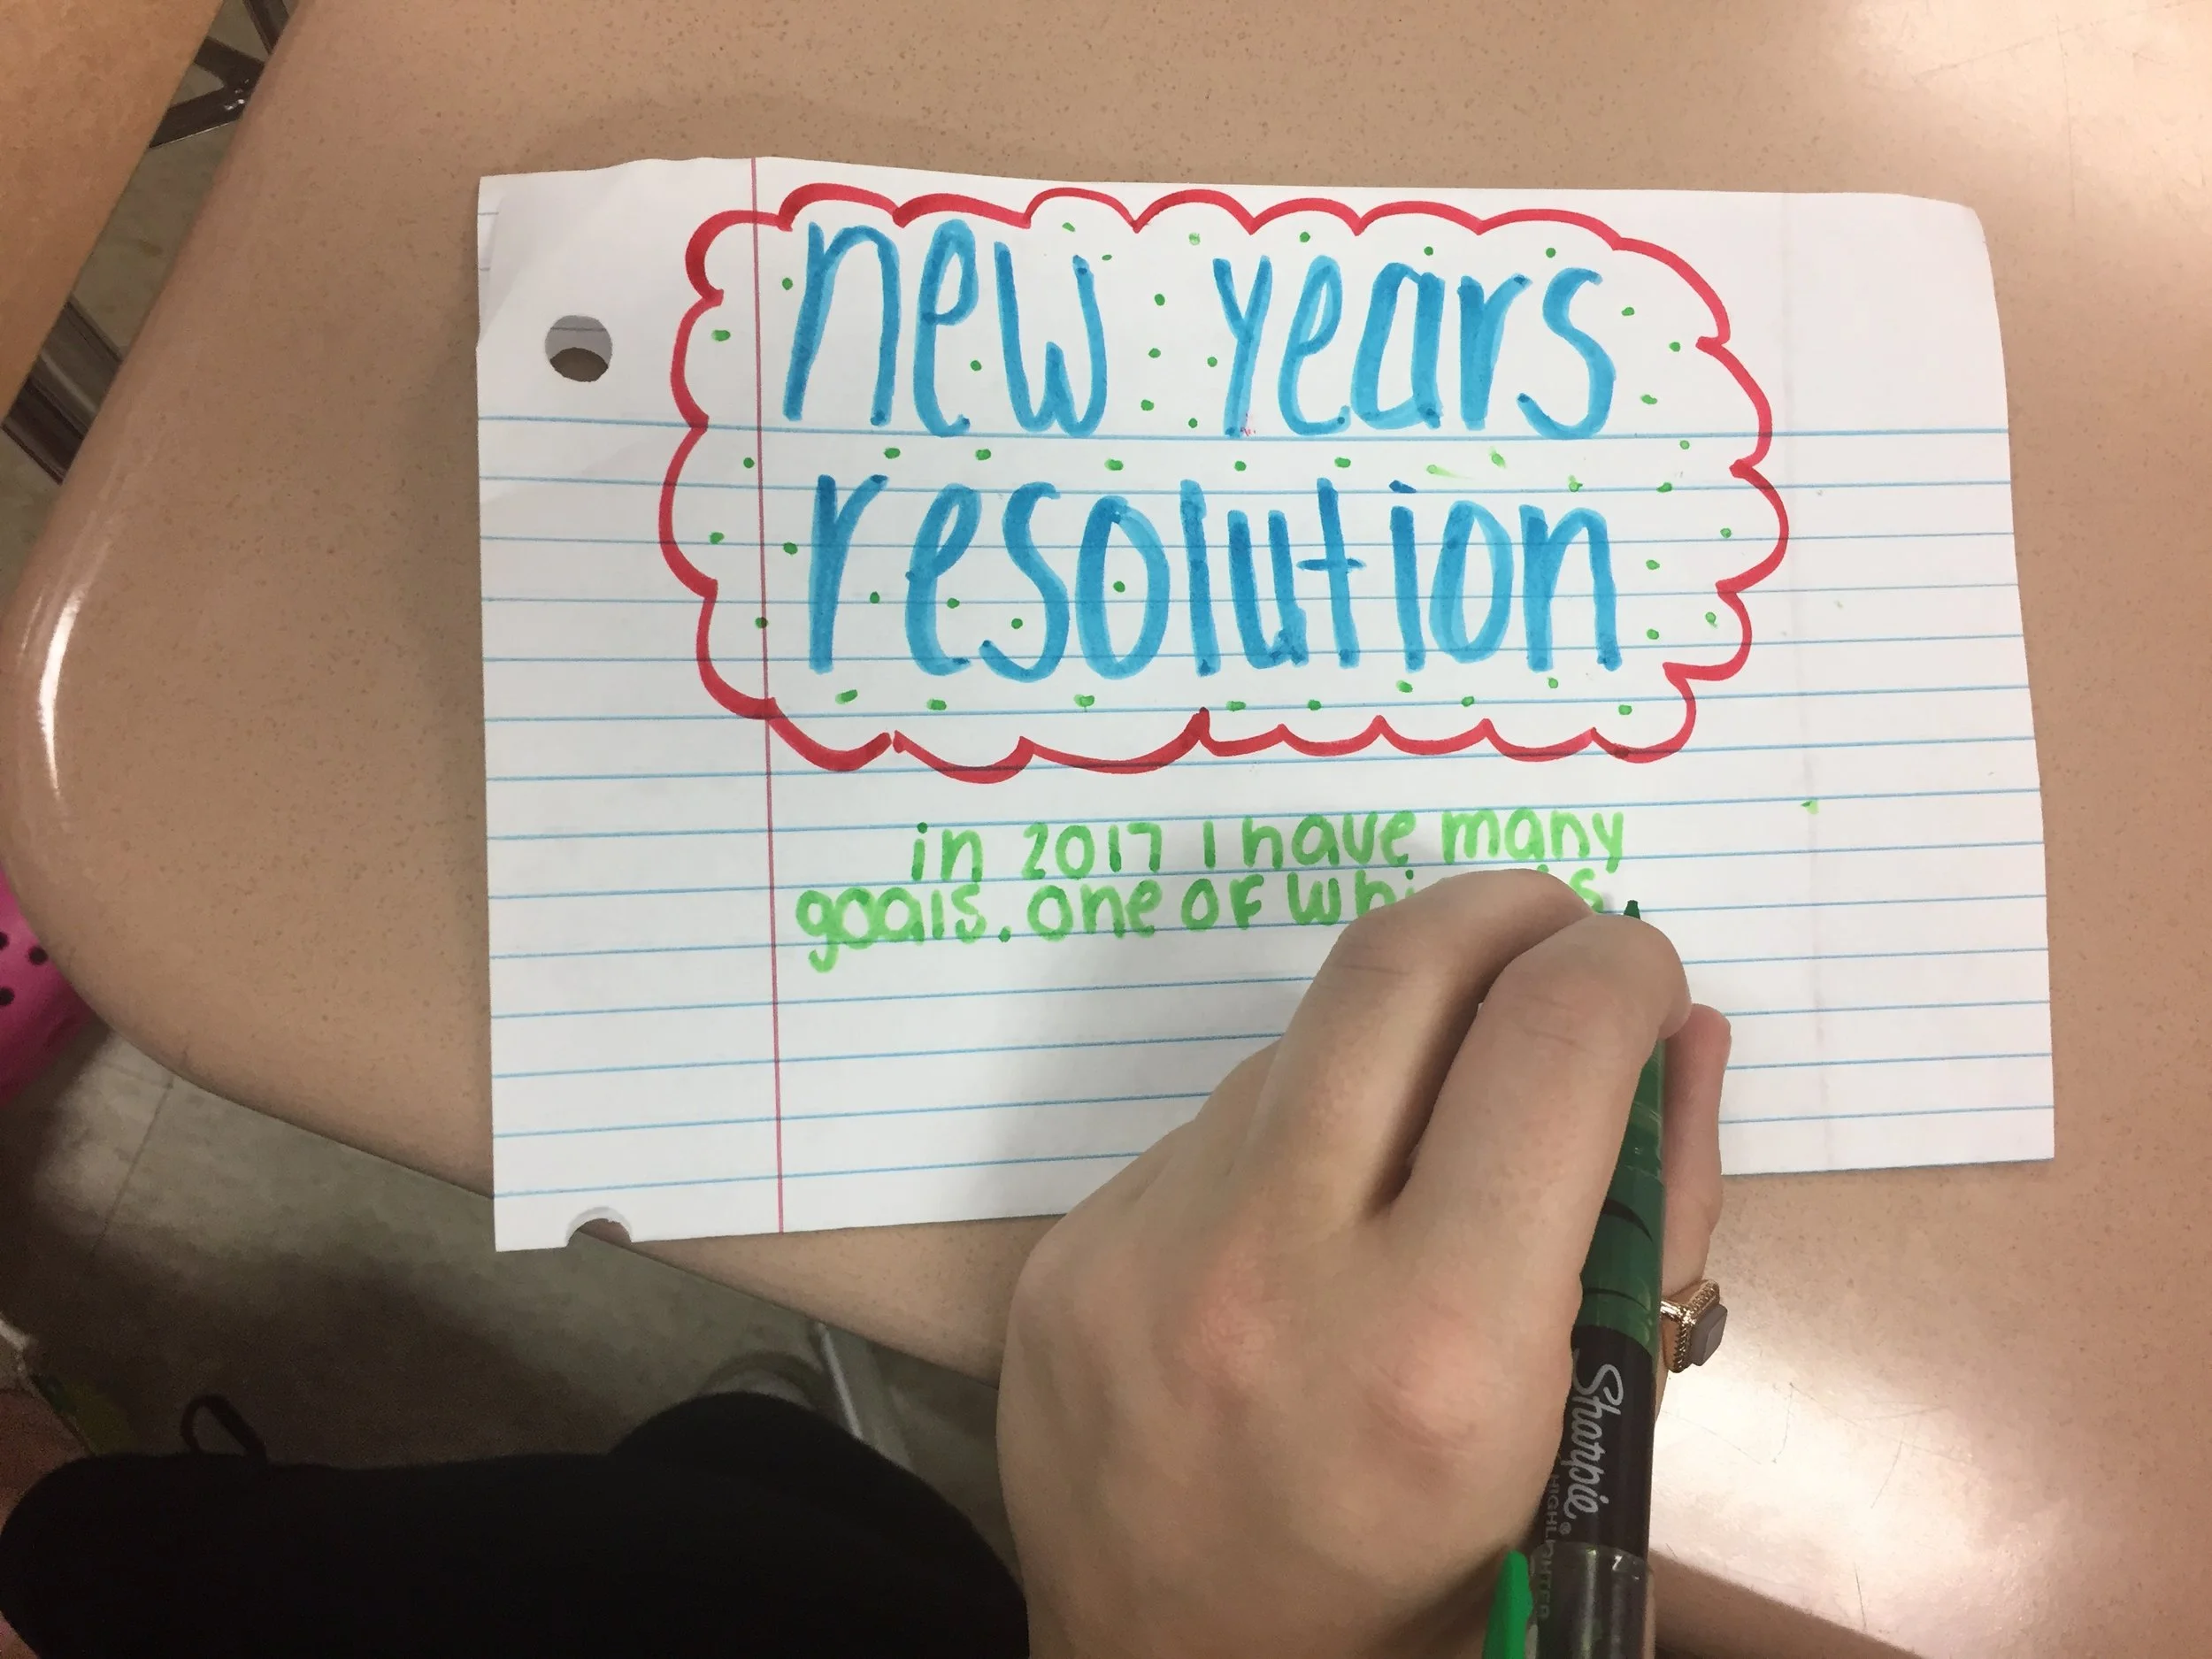 new years
resolution
in 2017 I have many
goals. one of which is
Sharpie
HIGHLIGHTER